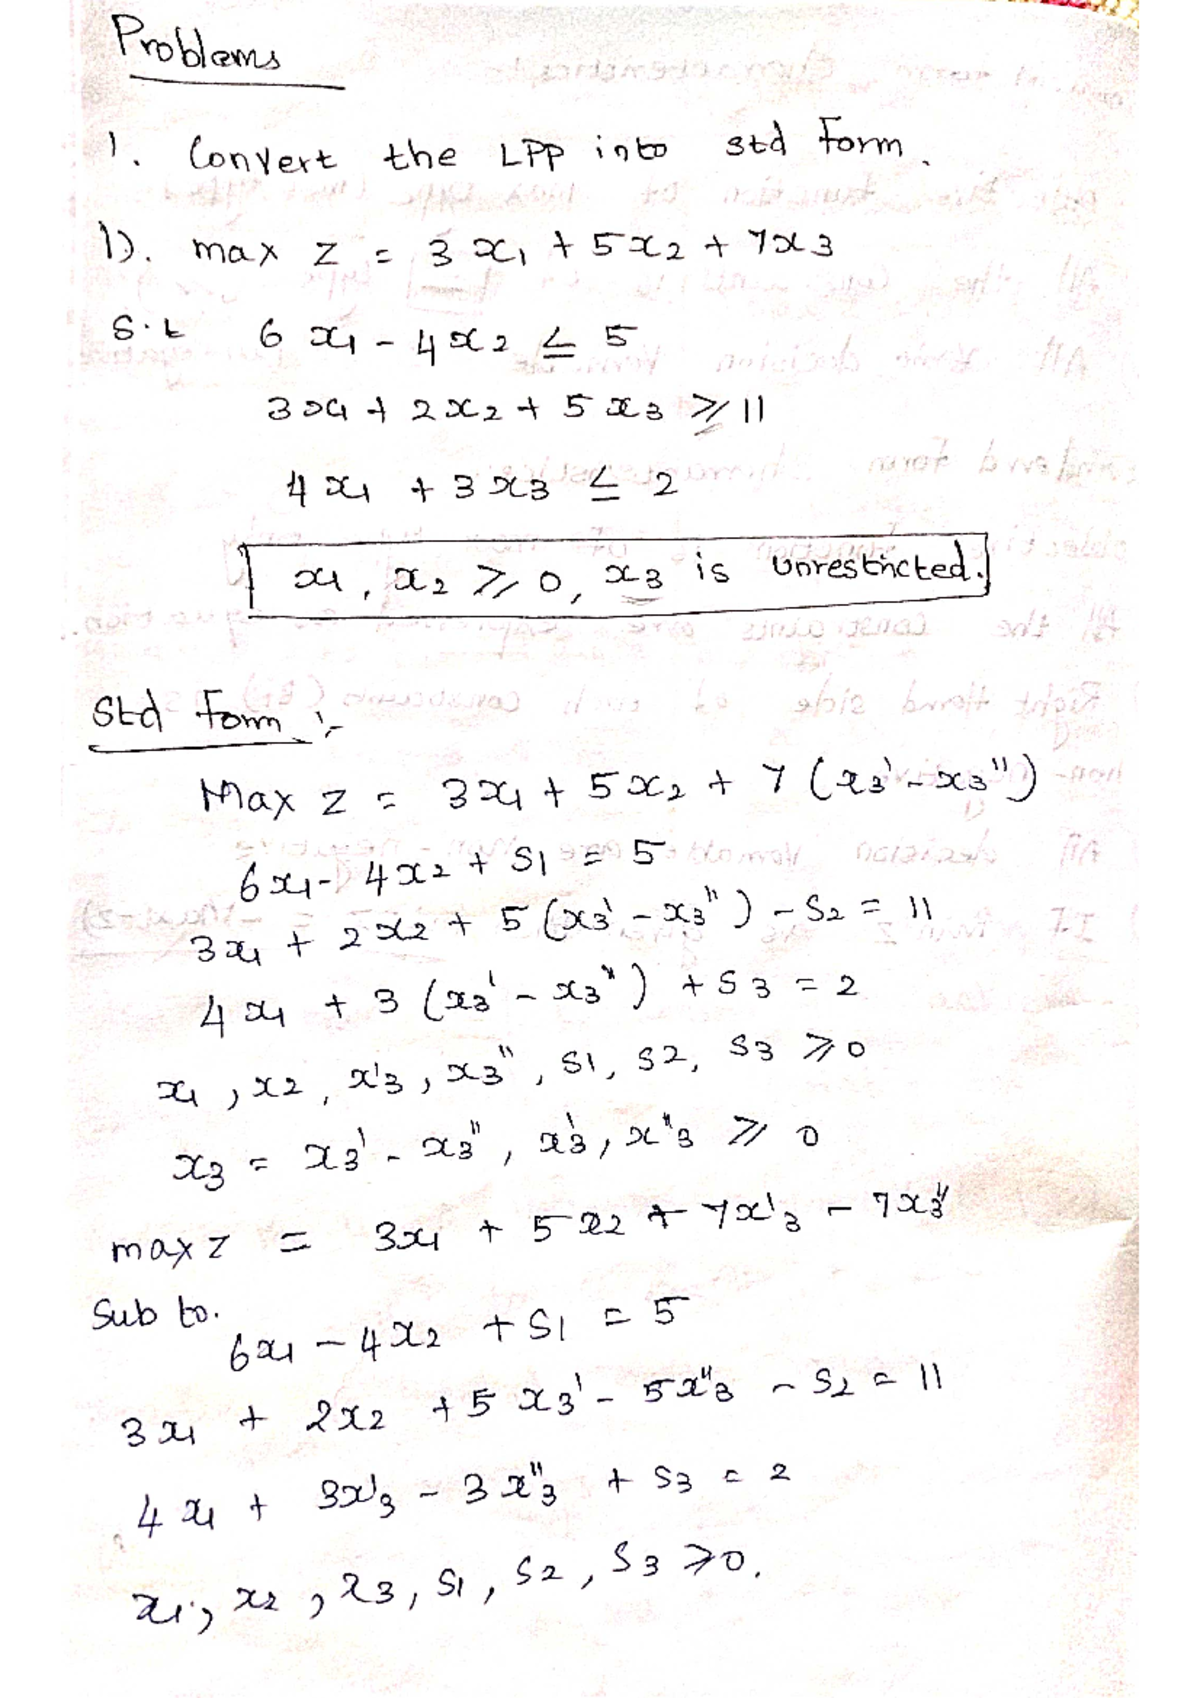 Problems
1. Convert the LPP into std form.
1). max z = 3x1 + 5x2 + 7x3
S.t 6x1 - 4x2 ≤ 5
3x1 + 2x2 + 5x3 ≥ 11
4x1 + 3x3 ≤ 2
x1, x2 ≥ 0, x3 is unrestricted.
Std form :-
Max z = 3x1 + 5x2 + 7(x3' - x3'')
6x1 - 4x2 + S1 = 5
3x1 + 2x2 + 5(x3' - x3'') - S2 = 11
4x1 + 3(x3' - x3'') + S3 = 2
x1, x2, x'3, x3'', S1, S2, S3 ≥ 0
x3 = x3' - x3'', x'3, x''3 ≥ 0
max z = 3x1 + 5x2 + 7x'3 - 7x3''
Sub to.
6x1 - 4x2 + S1 = 5
3x1 + 2x2 + 5x3' - 5x''3 - S2 = 11
4x1 + 3x'3 - 3x''3 + S3 = 2
x1, x2, x3, S1, S2, S3 ≥ 0.